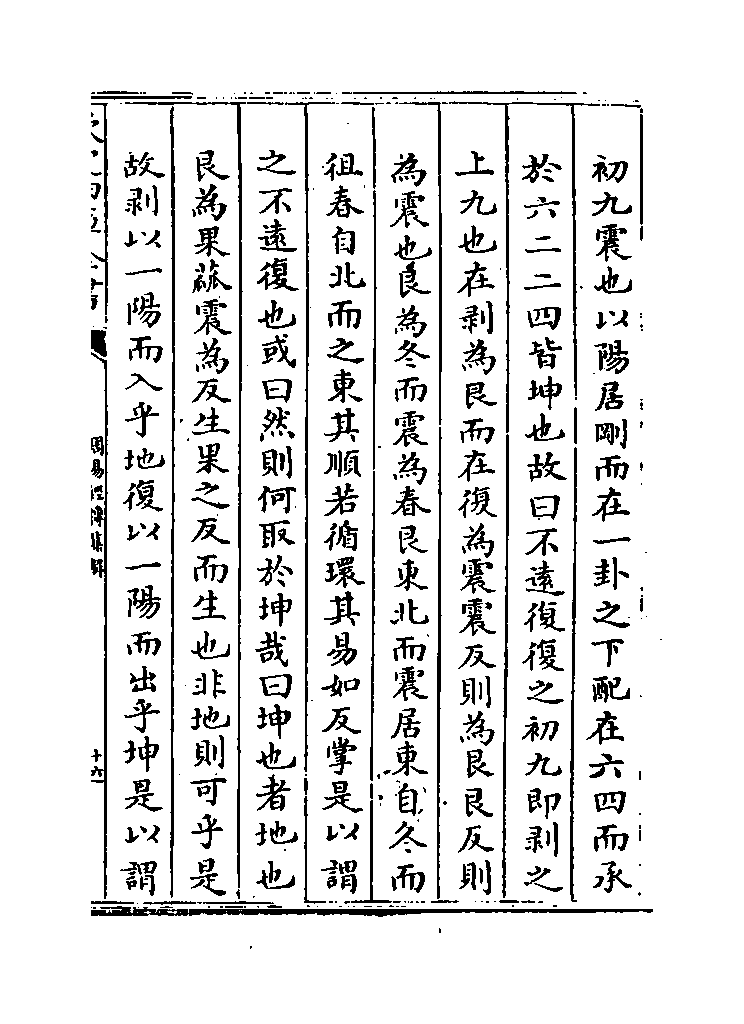 初九震也以陽居剛而在一卦之下配在六四而承
於六二二四皆坤也故曰不遠復復之初九即剥之
上九也在剥為艮而在復為震震反則為艮艮反則
為震也艮為冬而震為春艮東北而震居東自冬而
徂春自北而之東其順若循環其易如反掌是以謂
之不遠復也或曰然則何取於坤哉曰坤也者地也
艮為果蓏震為反生果之反而生也非地則可乎是
故剥以一陽而入乎地復以一陽而出乎坤是以謂
周易經傳集解
十六